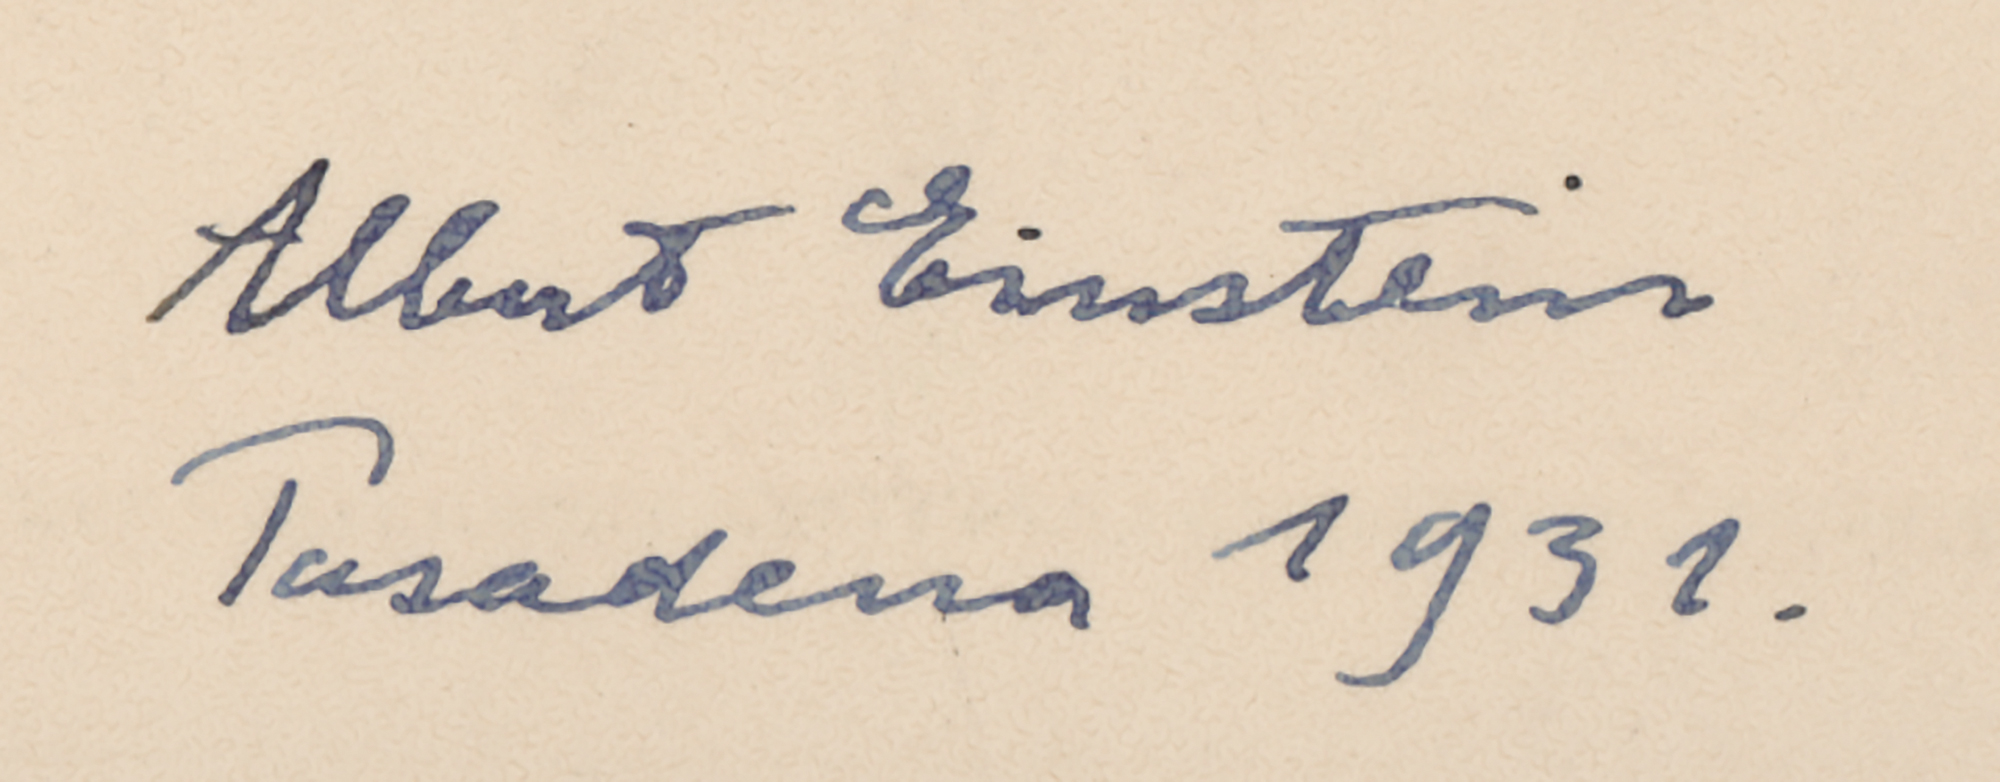 Albert Einstein
Pasadena 1931.